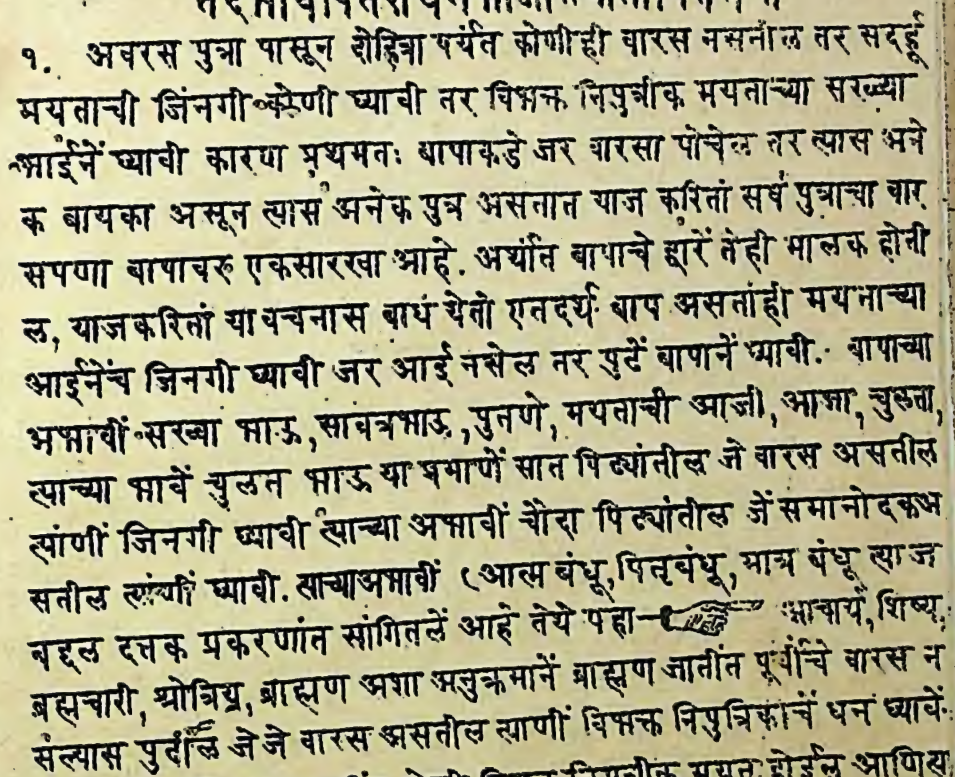 १. अवरस पुत्रा पासून दोहित्रा पर्यंत कोणीही वारस नसनील तर सदर्हू
मयताची जिंनगी कोणी घ्यावी तर विभक्त निपुत्रीक मयताच्या सरव्या
आईनें घ्यावी कारण प्रथमतः बापाकडे जर वारसा पोचेल तर त्यास अने
क बायका असून त्यास अनेक पुत्र असतात याज करितां सर्व पुत्राचा वार
सपणा बापावरु एकसारखा आहे. अर्थात बापाचे द्वारें तेही मालक होती
ल, याजकरितां या वचनास बाध येतो एतदर्थ बाप असतांही मयताच्या
आईनेंच जिनगी घ्यावी जर आई नसेल तर पुढें बापानें घ्यावी. बापाच्या
अभावीं सख्वा भाऊ, सावत्रभाऊ, पुतणे, मयताची आजी, आजा, चुलता,
त्याच्या भावें चुलत भाऊ या प्रमाणें सात पिढ्यांतील जे वारस असतील
त्यांणीं जिनगी घ्यावी त्याच्या अभावीं चौदा पिढ्यांतील जें समानोदक अ
सतील त्यांणीं घ्यावी. त्याच्या अभावीं (आत्म बंधू, पितृबंधू, मात्र बंधू त्याज
बद्दल दत्तक प्रकरणांत सांगितलें आहे तेथे पहा आचार्य, शिष्य,
ब्रह्मचारी, श्रोत्रिय, ब्राह्मण अशा अनुक्रमानें ब्राह्मण जातींत पूर्वींचे वारस न
संल्यास पुढील जे जे वारस असतील त्याणीं विभक्त निपुत्रिकाचं धन घ्यावें
मयत होईल आणि त्य